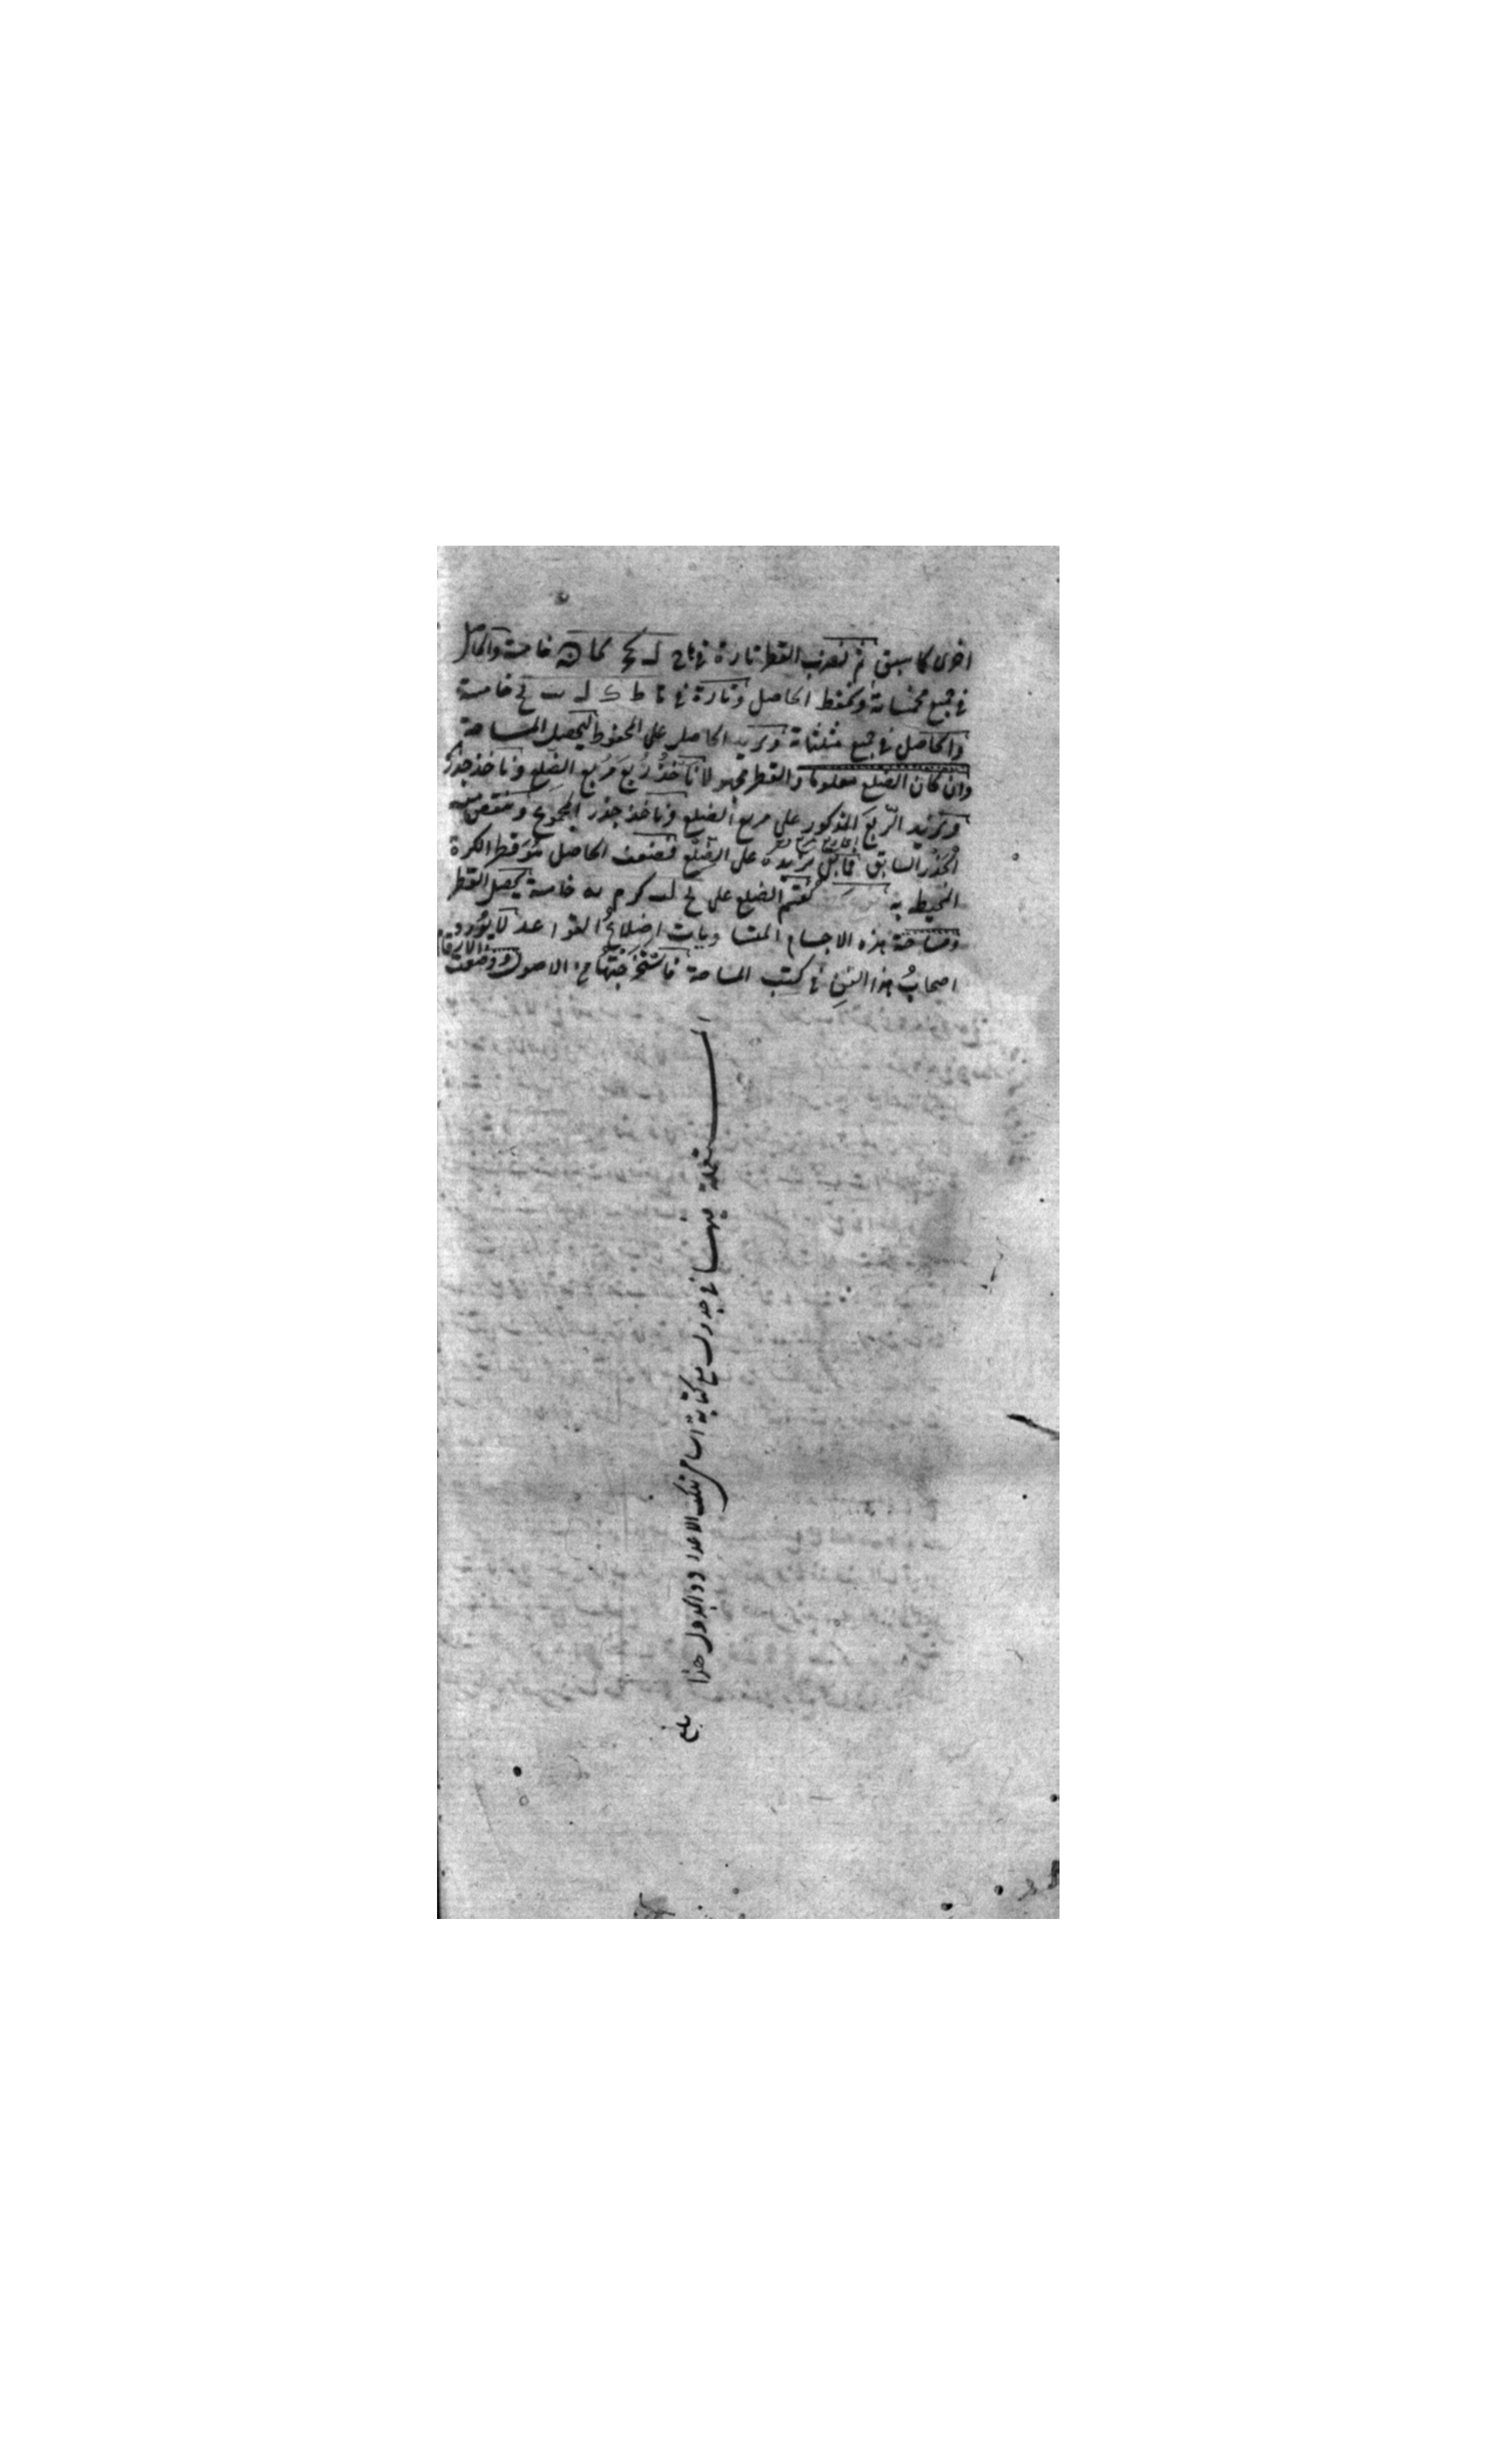 اخرى كما سبق ثم نضرب القطر تارة في خامسة والحاصل
في جميع مخمساته ونحفظ الحاصل وتارة في ا ط ك ل خامسة
والحاصل في جميع مثلثاته ونزيد الحاصل على المحفوظ ليحصل المساحة
وان كان الضلع معلوما والقطر مجهولا نأخذ ربع مربع الضلع ونأخذ جذره
ونزيد الربع المذكور على مربع الضلع ونأخذ جذر المجموع وننقص منه
الجذر السابق فما بقي نزيده على الضلع فنضعف الحاصل هو قطر الكرة
المحيط به نقسم الضلع على خامسة يحصل القطر
ومساحة هذه الاجسام المتساويات اضلاع القواعد لا يورد
اصحاب هذا الفن في كتب المساحة فاستخرجتها من الاصول ووضعت الارقام
المستعملة فيها في جدول مع كتابة اسامي تلك الاعداد والجدول هذا
بلغ